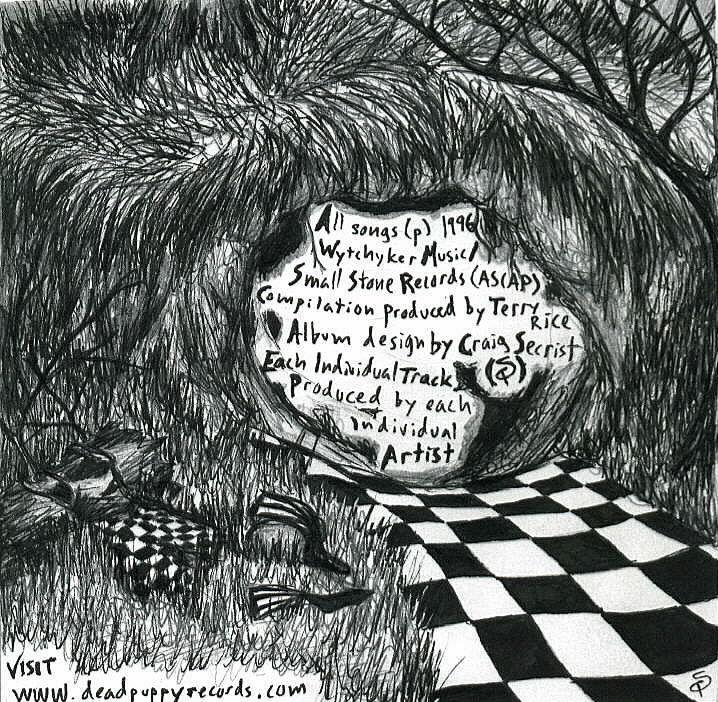 All songs (p) 1996
Wytchyker Music/
Small Stone Records (ASCAP)
Compilation produced by Terry
Rice
Album design by Craig Secrist
Each Individual Track
Produced by each
Individual
Artist
VISIT
www.deadpuppyrecords.com